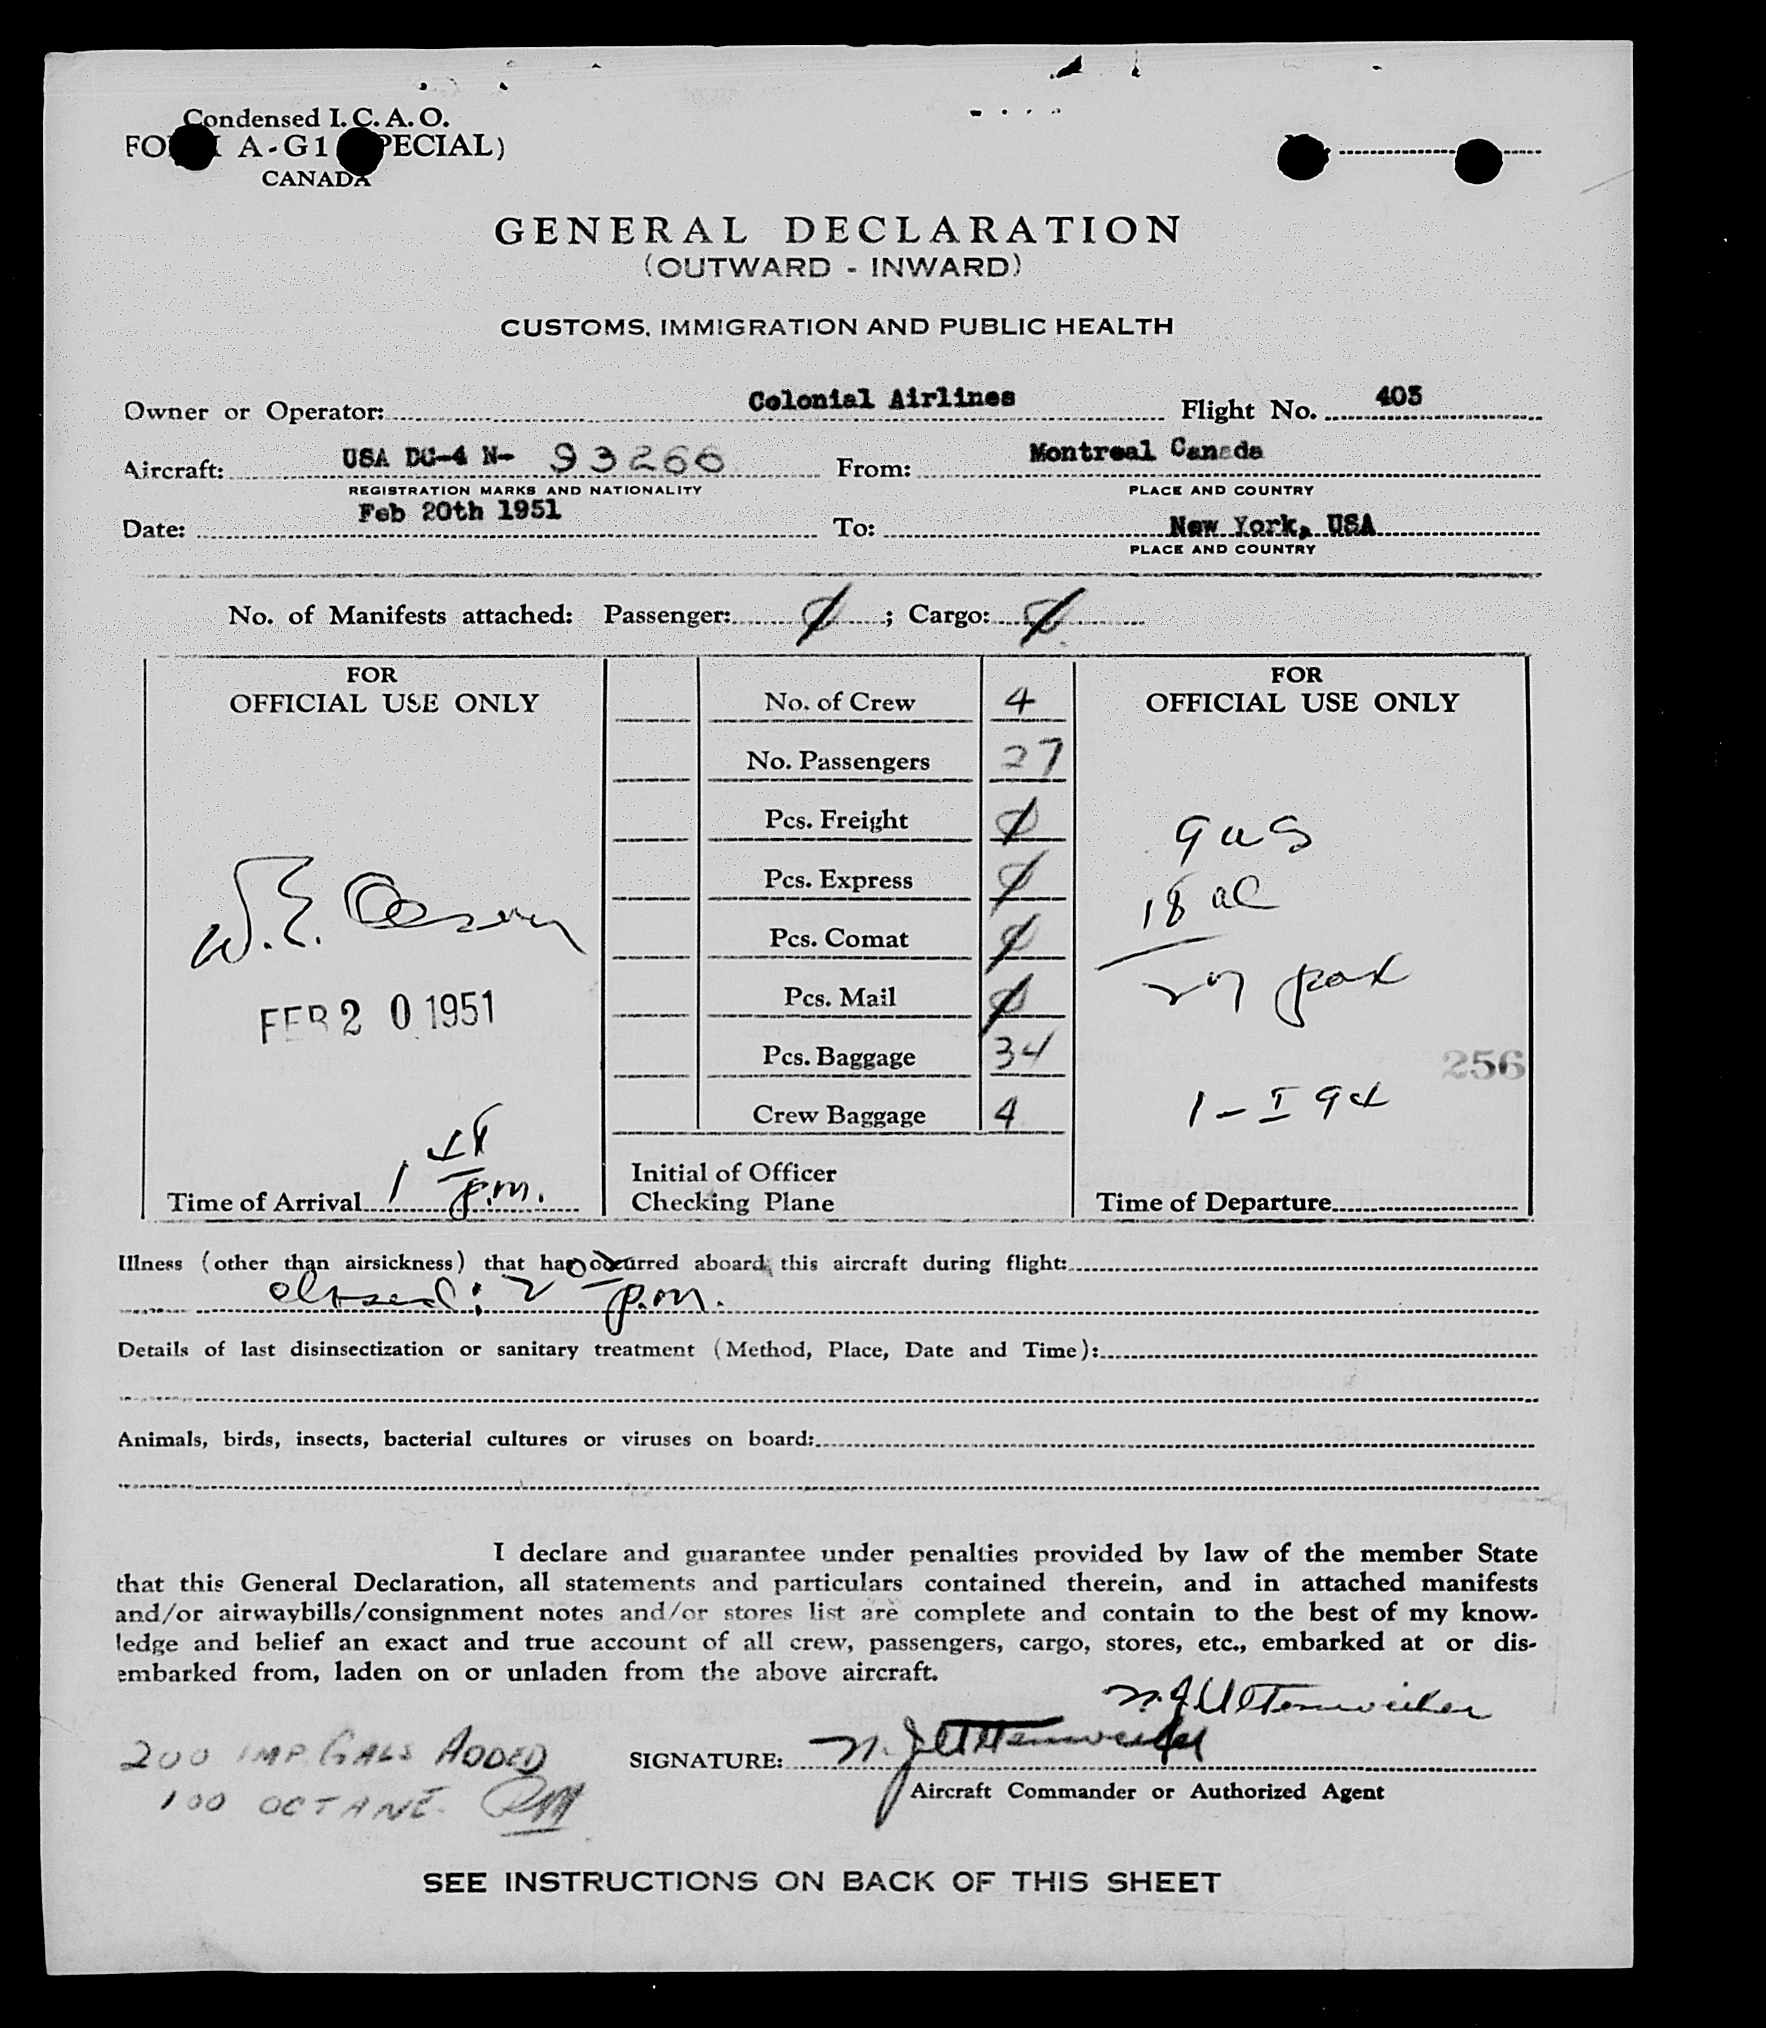 Condensed I. C. A. O.
A - G1 PECIAL)
CANADA
GENERAL DECLARATION
(OUTWARD - INWARD)
CUSTOMS, IMMIGRATION AND PUBLIC HEALTH
Owner or Operator: Colonial Airlines Flight No. 403
Aircraft: USA DC-4 N- 93266 From: Montreal Canada
REGISTRATION MARKS AND NATIONALITY PLACE AND COUNTRY
Date: Feb 20th 1951 To: New York, USA
PLACE AND COUNTRY
No. of Manifests attached: Passenger: 0 ; Cargo: 0
FOR
OFFICIAL USE ONLY
W. E.
FEB 20 1951
Time of Arrival 1 p.m.
No. of Crew 4
No. Passengers 27
Pcs. Freight 0
Pcs. Express 0
Pcs. Comat 0
Pcs. Mail 0
Pcs. Baggage 34
Crew Baggage 4
Initial of Officer
Checking Plane
FOR
OFFICIAL USE ONLY
9 us
18 al
27 pax
256
1 - I
Time of Departure
Illness (other than airsickness) that has occurred aboard this aircraft during flight:
closed: 2 p.m.
Details of last disinsectization or sanitary treatment (Method, Place, Date and Time):
Animals, birds, insects, bacterial cultures or viruses on board:
I declare and guarantee under penalties provided by law of the member State
that this General Declaration, all statements and particulars contained therein, and in attached manifests
and/or airwaybills/consignment notes and/or stores list are complete and contain to the best of my know-
ledge and belief an exact and true account of all crew, passengers, cargo, stores, etc., embarked at or dis-
embarked from, laden on or unladen from the above aircraft.
200 IMP. GALS ADDED
100 OCTANE.
SIGNATURE:
Aircraft Commander or Authorized Agent
SEE INSTRUCTIONS ON BACK OF THIS SHEET